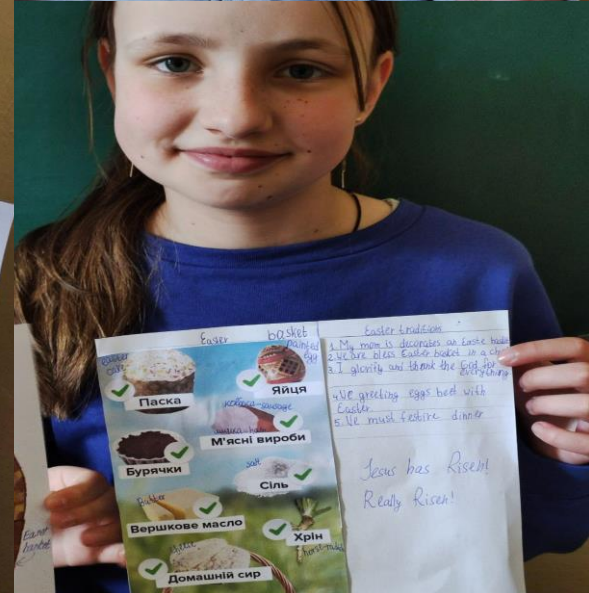 Easter basket
Easter cake
painted egg
Паска
Яйця
ковбаса-sausage
М'ясні вироби
Бурячки
salt
Сіль
Butter
Вершкове масло
Хрін
Домашній сир
Easter traditions
1. My mom is decorates an Easte
2. We are bless Easter basket in a
3. I glority and thenk the God for
everything
4. We greeting eggs beet with
Easter
5. We must festive dinner
Jesus has Risen!
Really Risen!
Easter
basket